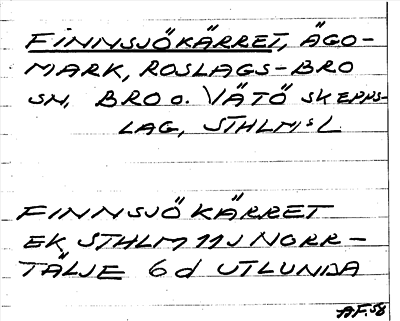 FINNSJÖKÄRRET, ÄGO-
MARK, ROSLAGS-BRO
SN, BRO o. VÄTÖ SKEPPS-
LAG, STHLMS L
FINNSJÖKÄRRET
EK STHLM 11J NORR-
TÄLJE 6d UTLUNDA
AF.58